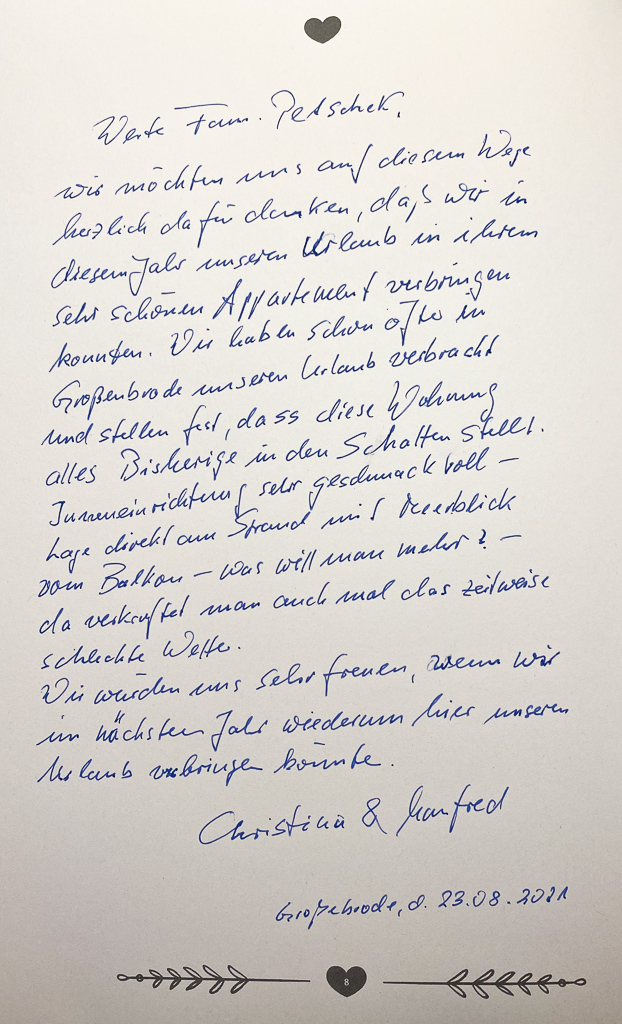 Werte Fam. Petschek,
wir möchten uns auf diesem Wege
herzlich dafür danken, daß wir in
diesem Jahr unseren Urlaub in ihrem
sehr schönen Appartement verbringen
konnten. Wir haben schon öfter in
Großenbrode unseren Urlaub verbracht
und stellen fest, dass diese Wohnung
alles Bisherige in den Schatten stellt.
Inneneinrichtung sehr geschmackvoll –
Lage direkt am Strand mit Meerblick
vom Balkon – was will man mehr? –
da verkraftet man auch mal das zeitweise
schlechte Wetter.
Wir würden uns sehr freuen, wenn wir
im nächsten Jahr wiederum hier unseren
Urlaub verbringen könnte.
Christina & Manfred
Großebrode, d. 23.08.2021
8